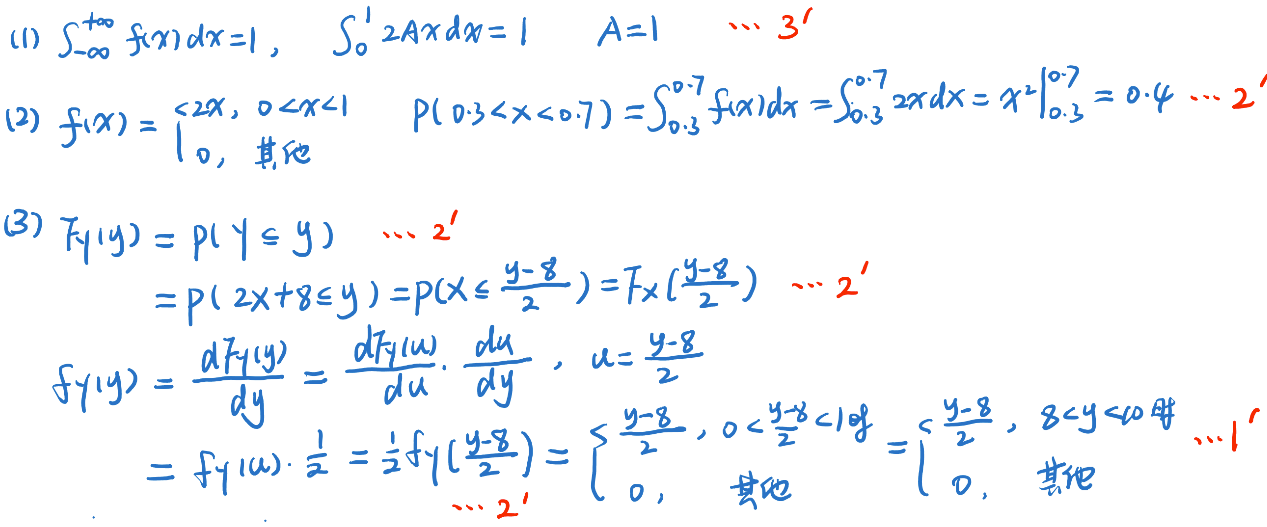 (1) ∫_{-∞}^{+∞} f(x)dx=1, ∫_0^1 2Axdx=1 A=1 … 3'
(2) f(x) = { 2x, 0<x<1 P(0.3<x<0.7) = ∫_{0.3}^{0.7} f(x)dx = ∫_{0.3}^{0.7} 2xdx = x²|_{0.3}^{0.7} = 0.4 … 2'
0, 其他
(3) F_Y(y) = P(Y ≤ y) … 2'
= P(2X+8≤y) = P(X ≤ \frac{y-8}{2}) = F_X(\frac{y-8}{2}) … 2'
f_Y(y) = \frac{dF_Y(y)}{dy} = \frac{dF_Y(u)}{du} · \frac{du}{dy}, u = \frac{y-8}{2}
= f_Y(u)·\frac{1}{2} = \frac{1}{2}f_Y(\frac{y-8}{2}) = { \frac{y-8}{2}, 0<\frac{y-8}{2}<1时 = { \frac{y-8}{2}, 8<y<10时 … 1'
0, 其他 0, 其他
… 2'